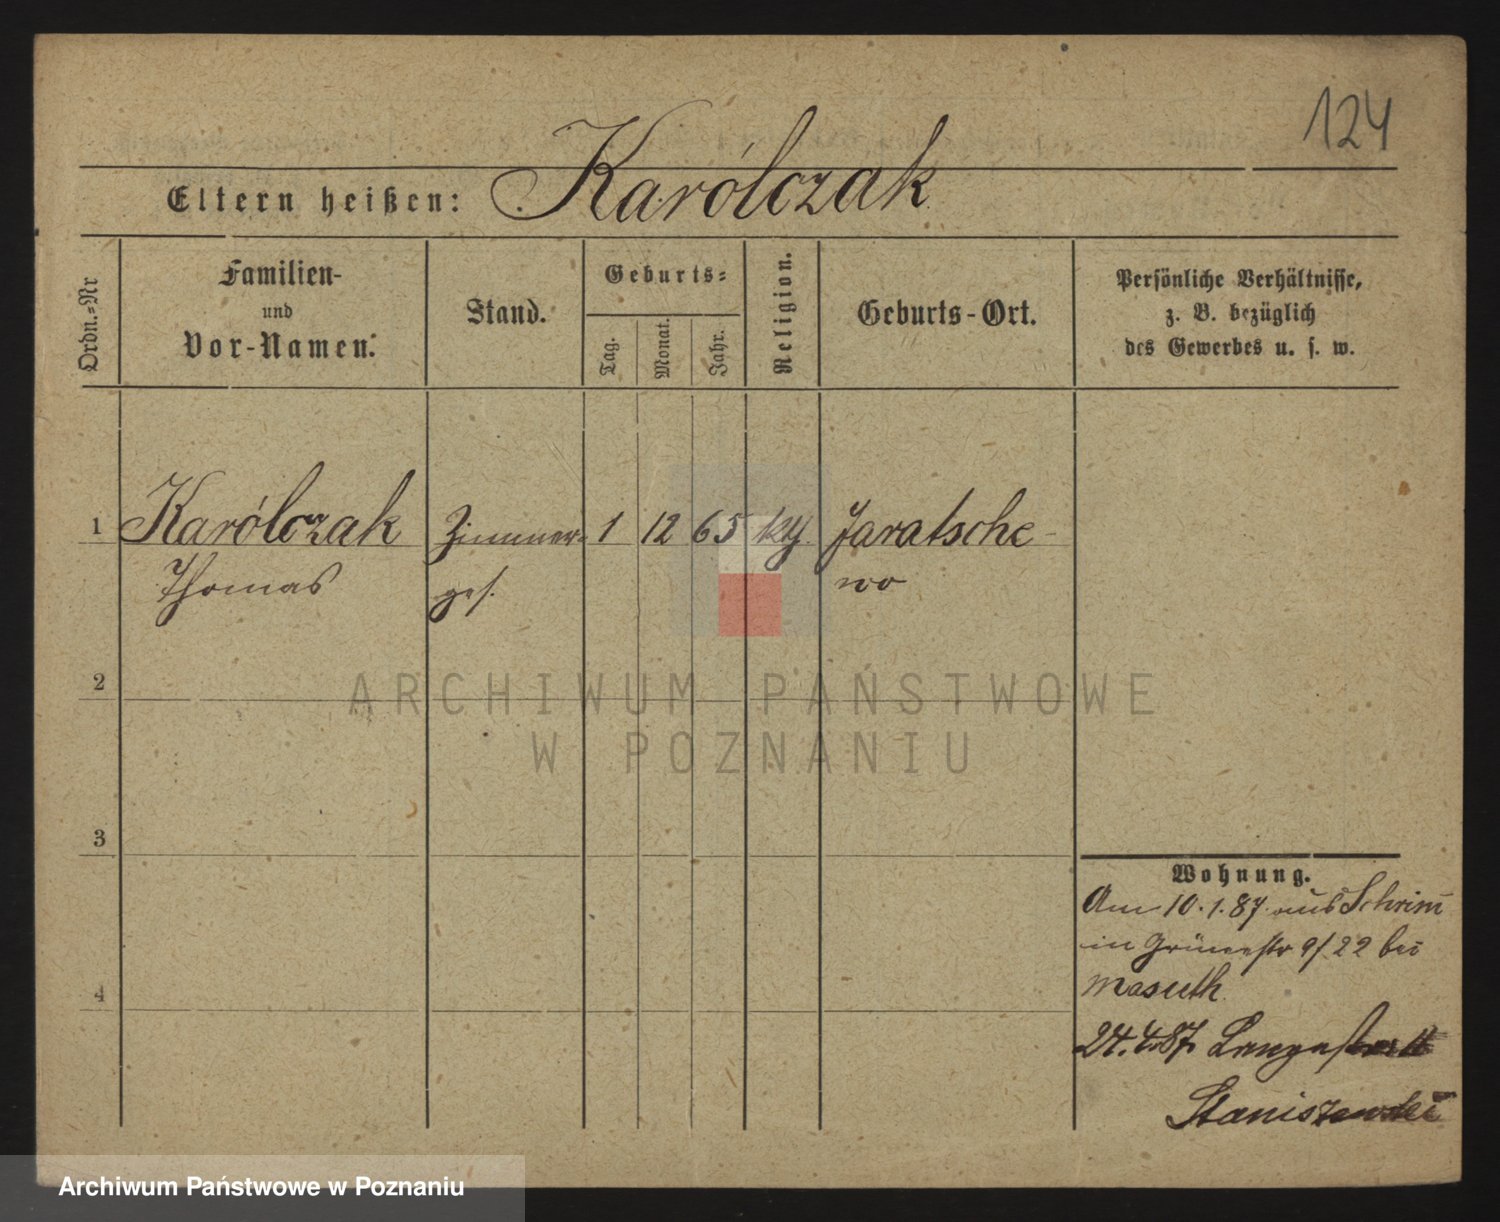 124
Eltern heißen: Karólczak
Ordn.-Nr
Familien-
und
Vor-Namen:
Stand.
Geburts-
Tag.
Monat.
Jahr.
Religion.
Geburts-Ort.
Persönliche Verhältnisse,
z. B. bezüglich
des Gewerbes u. s. w.
1 Karólczak Zimmer- 1 12 65 kth. Jaratsche-
Thomas ges. wo
2
ARCHIWUM PAŃSTWOWE
W POZNANIU
3
4
Wohnung.
Am 10.1.87. aus Schrim
in Grünestr 9/22 bei
Masuth.
24.4.87. Langestr
Staniszewski
Archiwum Państwowe w Poznaniu